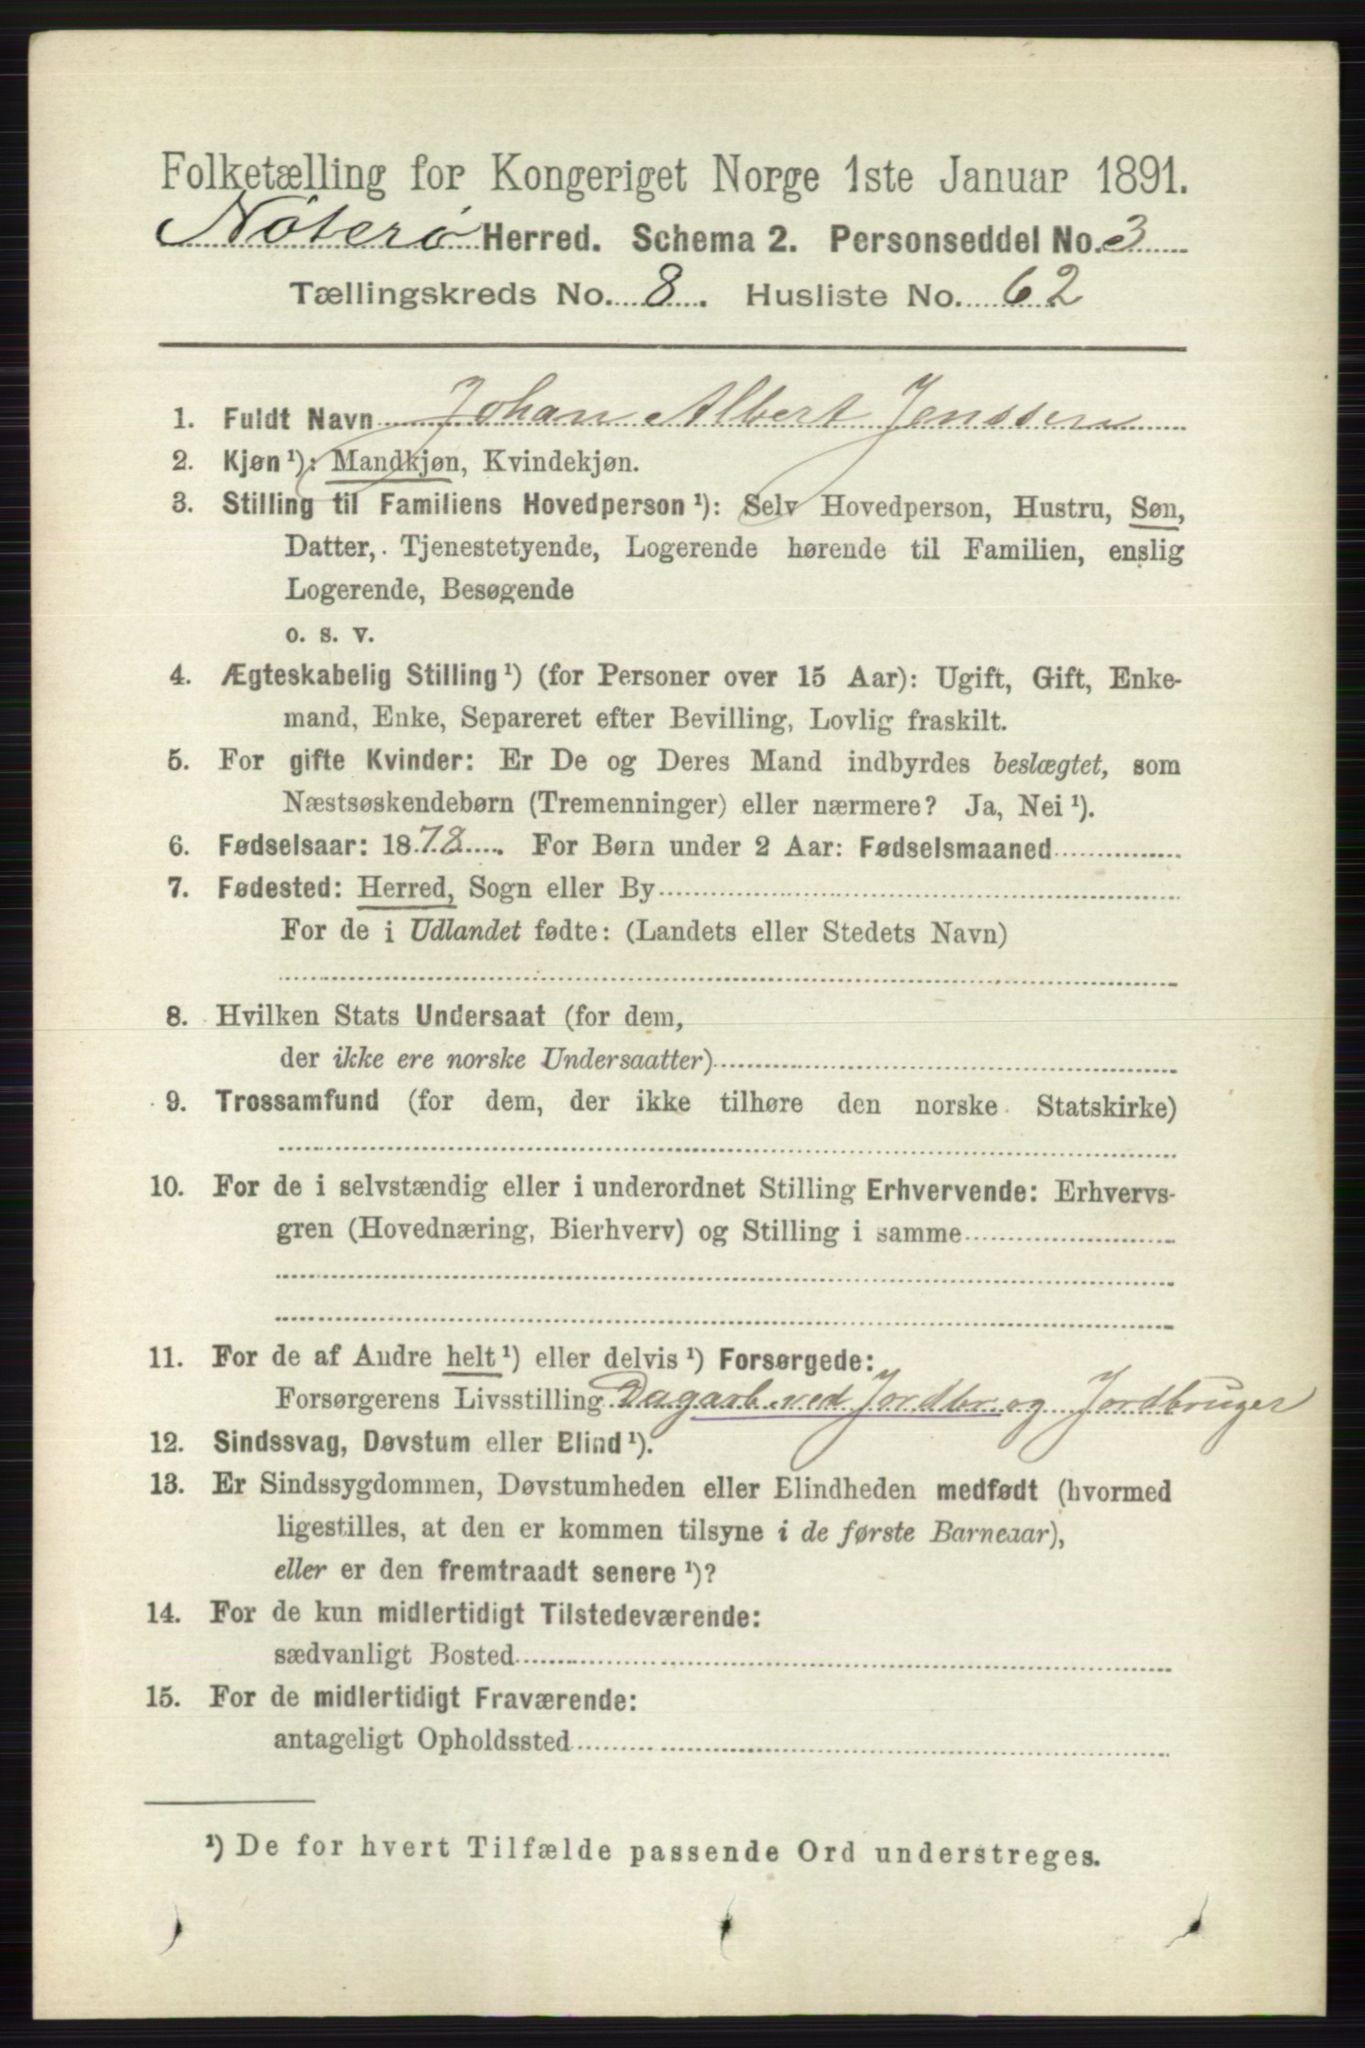 Folketælling for Kongeriget Norge 1ste Januar 1891.
Nöterö Herred. Schema 2. Personseddel No. 3
Tællingskreds No. 8. Husliste No. 62
1. Fuldt Navn Johan Albert Jenssen
2. Kjøn ¹): Mandkjøn, Kvindekjøn.
3. Stilling til Familiens Hovedperson ¹): Selv Hovedperson, Hustru, Søn,
Datter, Tjenestetyende, Logerende hørende til Familien, enslig
Logerende, Besøgende
o. s. v.
4. Ægteskabelig Stilling ¹) (for Personer over 15 Aar): Ugift, Gift, Enke-
mand, Enke, Separeret efter Bevilling, Lovlig fraskilt.
5. For gifte Kvinder: Er De og Deres Mand indbyrdes beslægtet, som
Næstsøskendebørn (Tremenninger) eller nærmere? Ja, Nei ¹).
6. Fødselsaar: 1878. For Børn under 2 Aar: Fødselsmaaned
7. Fødested: Herred, Sogn eller By
For de i Udlandet fødte: (Landets eller Stedets Navn)
8. Hvilken Stats Undersaat (for dem,
der ikke ere norske Undersaatter)
9. Trossamfund (for dem, der ikke tilhøre den norske Statskirke)
10. For de i selvstændig eller i underordnet Stilling Erhvervende: Erhvervs-
gren (Hovednæring, Bierhverv) og Stilling i samme
11. For de af Andre helt ¹) eller delvis ¹) Forsørgede:
Forsørgerens Livsstilling Dagarb. ved Jordbr. og Jordbruger
12. Sindssvag, Døvstum eller Blind ¹).
13. Er Sindssygdommen, Døvstumheden eller Blindheden medfødt (hvormed
ligestilles, at den er kommen tilsyne i de første Barneaar),
eller er den fremtraadt senere ¹)?
14. For de kun midlertidigt Tilstedeværende:
sædvanligt Bosted
15. For de midlertidigt Fraværende:
antageligt Opholdssted
¹) De for hvert Tilfælde passende Ord understreges.